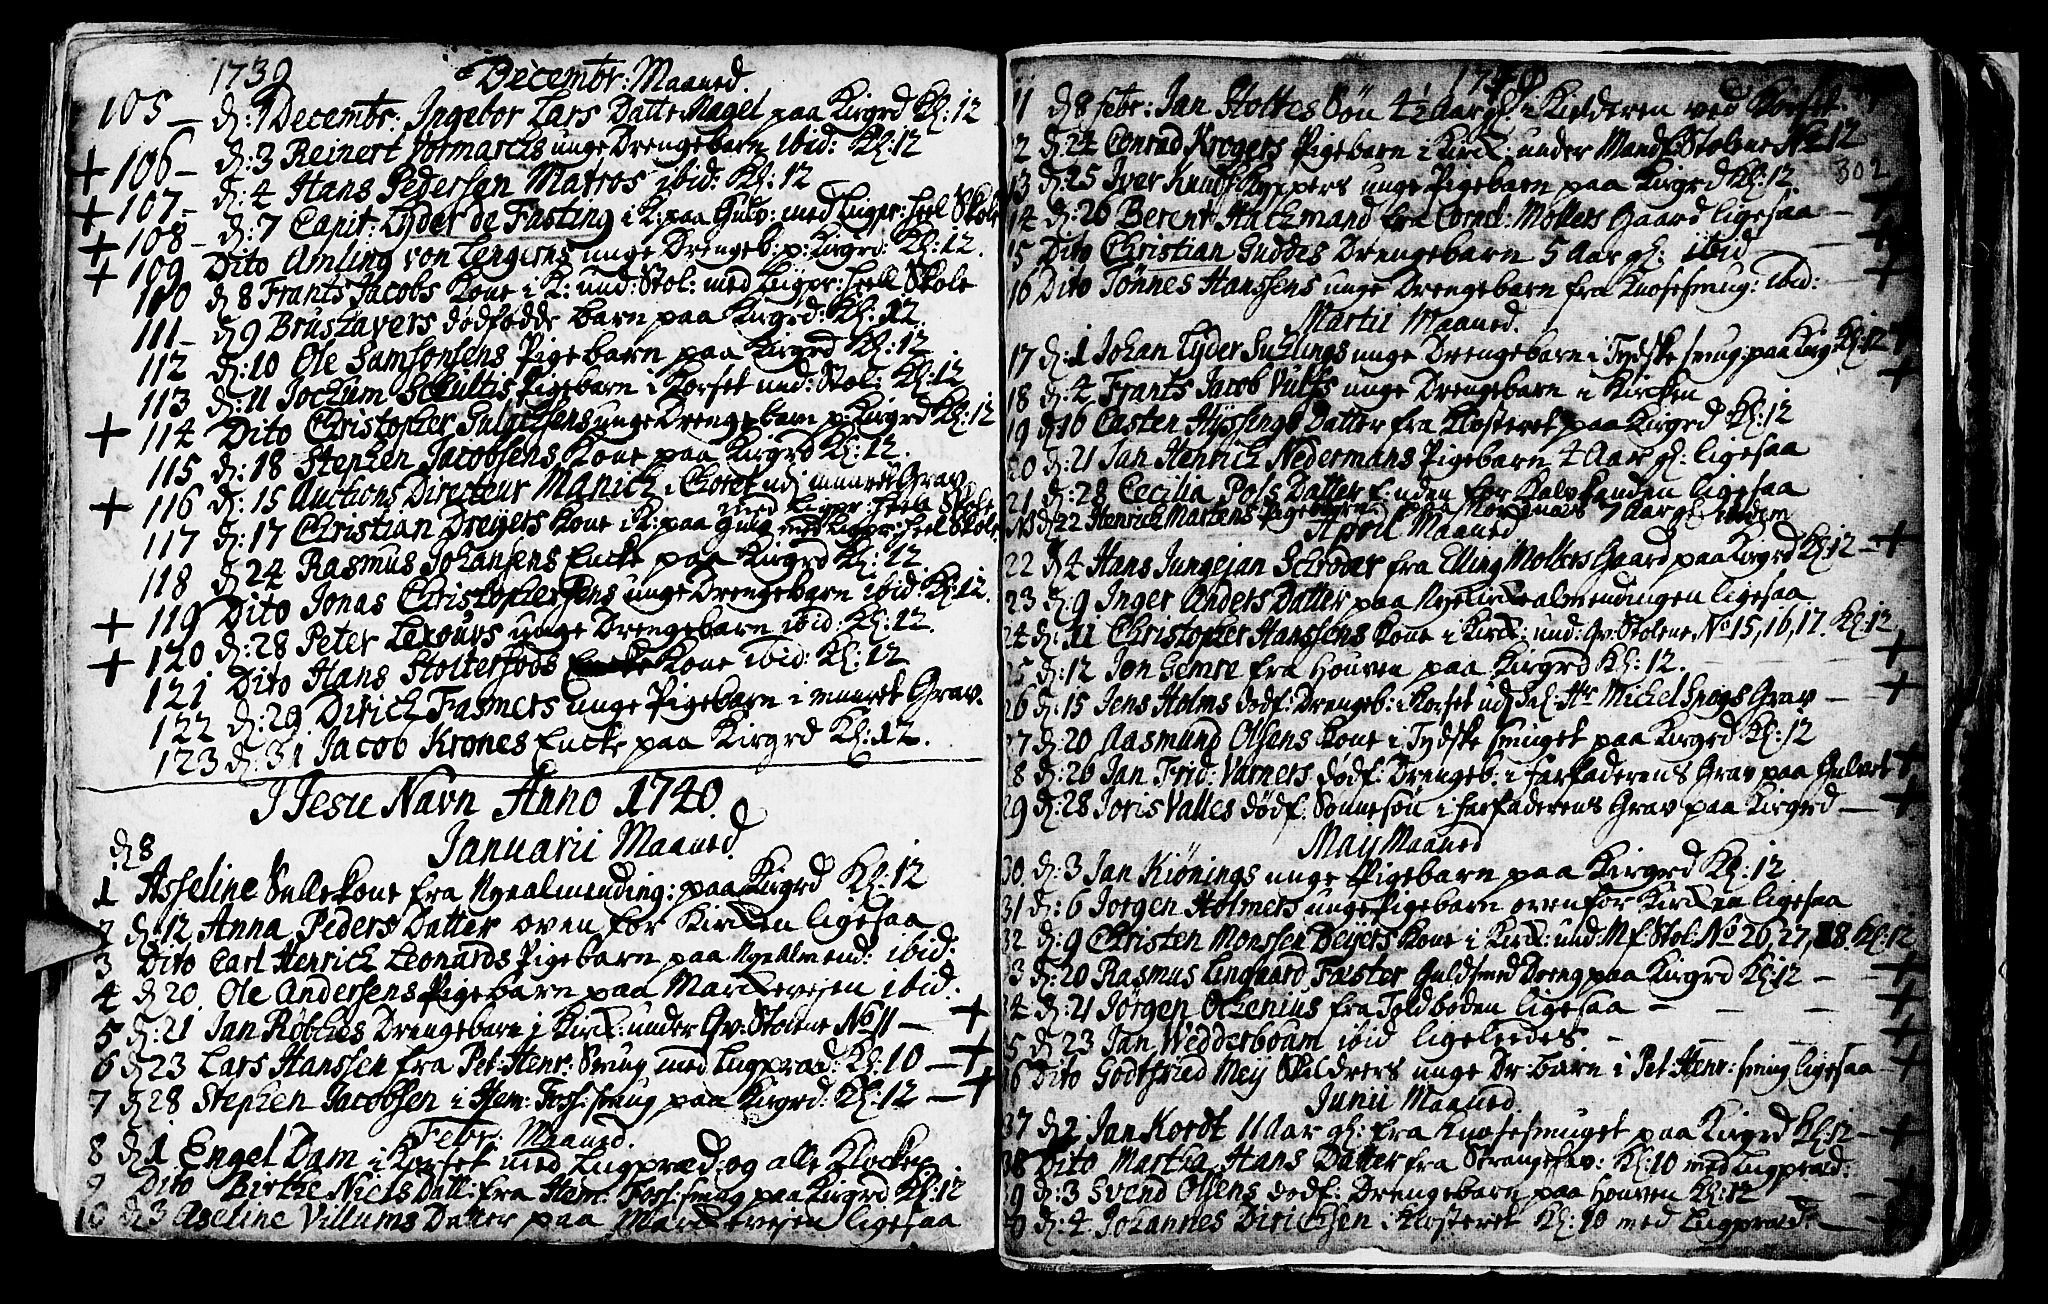 1739
Decembr: Maaned.
105 – d: 1 Decembr: Ingebor Lars Datter Nagel paa Kirgrd Kl: 12
+ 106 – d: 3 Reinert Vormarcks unge Drengebarn ibid: Kl: 12
+ 107 – d: 4 Hans Pedersen Matros ibid: Kl: 12
+ 108 – d: 7 Capit: Lyder de Fasting i K: paa Gulv: med Ligpr: heel Skole
+ 109 Dito Amling von Lengerns unge Drengeb: p: Kirgrd: Kl: 12.
110 d 8 Frants Jacobs Kone i K: und: Stol: med Ligpr: heel Skole
111 – d 9 Brustavers dödfödde barn paa Kirgrd: Kl: 12.
112 d: 10 Ole Samsonsens Pigebarn paa Kirgrd Kl: 12
113 d: 11 Jochum Schultis Pigebarn i Korset und: Stol: Kl: 12
+ 114 Dito Christopher unge Drengebarn p: Kirgrd Kl: 12
115 d: 18 Stephen Jacobsens Kone paa Kirgrd Kl: 12.
+ 116 d: 15 Auctions Directeur Manich i Choret udi muuret Grav
med Ligpr: heele Skole
117 d: 17 Christian Dreyers Kone i K: paa Gulv med Ligpr: heel Skole
118 d 24 Rasmus Johansens Encke paa Kirgrd Kl: 12
+ 119 Dito Jonas Christophersens unge Drengebarn ibid: Kl: 12.
+ 120 d: 28 Peter Lexours unge Drengebarn ibid: Kl: 12.
121 Dito Hans Stolterfods Kone ibid: Kl: 12
122 d: 29 Dirich Fasmers unge Pigebarn i muuret Grav.
123 d: 31 Jacob Krones Encke paa Kirgrd Kl: 12.
I Jesu Navn Anno 1740.
Januarii Maaned.
d 8
1 Asseline fra Nyealmending: paa Kirgrd Kl: 12
2 d: 12 Anna Peders Datter oven for Kircken ligesaa
3 Dito Carl Henrich Leonards Pigebarn paa Nyealmend: ibid:
4 d 20. Ole Andersens Pigebarn paa Marckevejen ibid.
5 d: 21 Jan Röbckes Drengebarn i Kirck: under Qv: Stolene No 11 – +
6 d 23 Lars Hanssen fra Pet: Henr: Smug med Ligpræd: Kl: 10 – +
7 d 28 Stephen Jacobsen i Hem: Fosf: smug paa Kirgrd: Kl: 12 – +
Febr: Maaned.
8 d 1 Engel Dam i Korset med Ligpræd: og alle Klocker
9 Dito Birthe Niels Datt: fra Hem: Fosf: smug paa Kirgrd Kl: 12
10 d 3 Aseline Villums Datter paa Marckevejen ligesaa
1740
11 d 8 Febr: Jan Holtes Sön 4 1/2 Aar gl: i Kielderen ved Korset.
12 d: 24 Conrad Krogers Pigebarn i Kirck: under Mandf: Stolene No 12
302
13 d: 25 Iver Knudts unge Pigebarn paa Kirgrd Kl: 12.
14 d: 26 Berent Hackmand fra Cornel: Mollers Gaard ligesaa – +
15 Dito Christian Guddes Drengebarn 5 Aar gl: ibid – +
16 Dito Tönnes Hanssens unge Drengebarn fra Knosesmug: ibid: +
Martii Maaned.
17 d: 1 Johan Lyder Suhlings unge Drengebarn i Tydske smug: paa Kirg: Kl: 12 +
18 d: 4 Frants Jacob Vulfs unge Drengebarn i Kircken +
19 d 16 Casten Hyssings Datter fra Klosteret paa Kirgrd Kl: 12
20 d: 21 Jan Henrich Nedermans Pigebarn 4 Aar gl: ligesaa
21 d: 28 Cecilia Pofs Datter uden for Kalvhauden ligesaa
NB d: 22 Henrich Martens Pigebarn 7 Aar gl:
April Maaned
22 d 4 Hans Jungejan Schröder fra Elling Mollers Gaard paa Kirgrd Kl: 12 – +
23 d: 9 Inger Anders Datter paa Nyekirckealmendingen ligesaa
24 d: 11 Christopher Hanssens Kone i Kirck: und: Qv: Stolene No 15, 16, 17. Kl: 12
25 d: 12 Jon Gemre fra Houven paa Kirgrd Kl: 12. – – – +
26 d: 15 Jens Holms dödf: Drengeb: i Korset Hr Michel Grav – +
27 d: 20 Aasmund Olsens Kone i Tydske smuget paa Kirgrd Kl: 12
28 d: 26 Jan Frid: Varners dödf: Drengeb: i Farfaderens Grav paa Gulvet +
29 d: 28 Joris Valles dödf: Sönnesön i Farfaderens Grav paa Kirgrd – +
May Maaned
30. d: 3 Jan Kiönings unge Pigebarn paa Kirgrd Kl: 12.
31 d: 6 Jorgen Holmers unge Pigebarn oven for Kircken ligesaa
32 d: 9 Christen Monssen Beyers Kone i Kirck: und: Mf: Stol: No 26, 27, 28. Kl: 12
33 d: 20 Rasmus Lingaard Faster Guldsmed Dreng paa Kirgrd Kl: 12 – +
34 d: 21 Jörgen Olzenius fra Toldboden ligesaa – – – +
35 d 23 Jan Wedderboum ibid ligeleedes. – – – +
36 Dito Godtfried Mey Skildrers unge Dr: barn i Pet Henr: smug ligesaa – +
Junii Maaned
37 d 2 Jan Kordt 11 Aar gl: fra Knosesmuget paa Kirgrd Kl: 12 – +
38 Dito Martha Hans Datter fra Strangehav: Kl: 10 med Ligpræd:
39 d: 3 Svend Olsens dödf: Drengebarn paa Houven Kl: 12 – +
40 d: 4 Johannes Dirichsen i Klosteret Kl: 10 med Ligpræd: – +